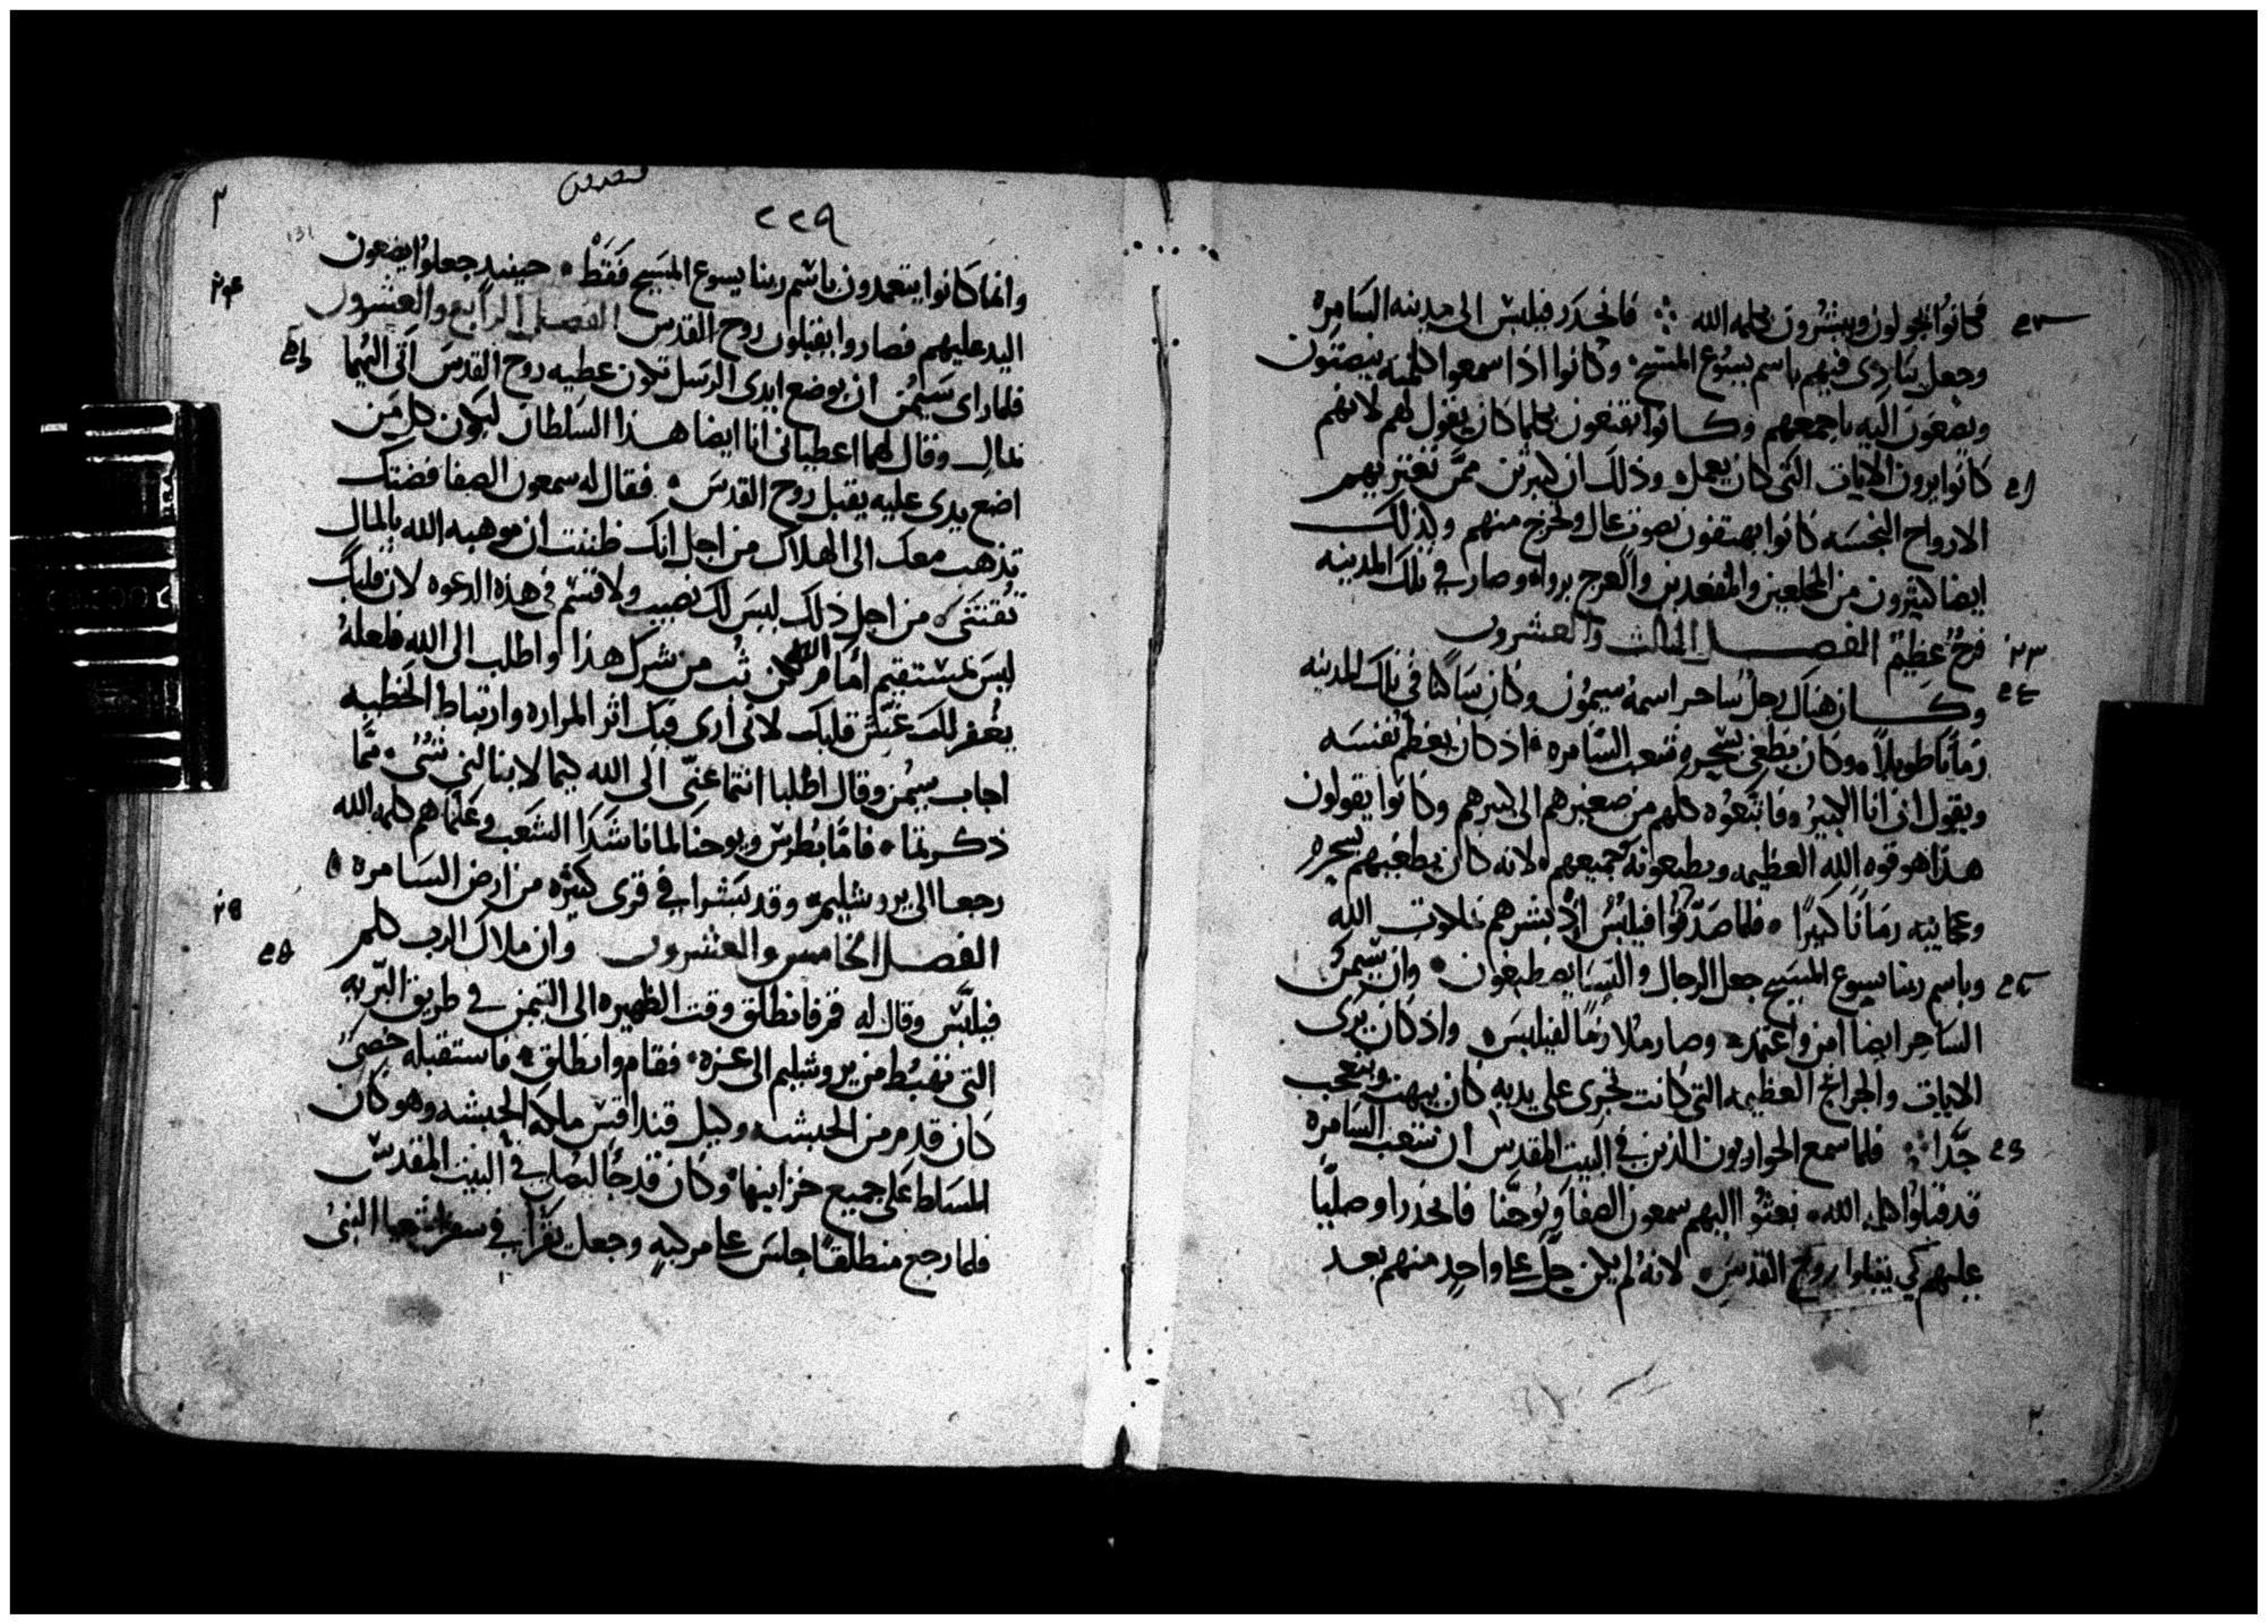 فكانوا يجولون ويبشرون بكلمه الله ۞ فانحدر فيلبس الى مدينه السامره
وجعل ينادى فيهم باسم يسوع المسيح وكانوا اذا سمعوا كلمته ينصتون
ويصغون اليه باجمعهم وكانوا يقنعون بكلما كان يقول لهم لانهم
كانوا يرون الايات التى كان يعمل وذلك ان كثيرين ممن تعتريهم
الارواح النجسه كانوا يهتفون بصوت عال وتخرج منهم وكذلك
ايضا كثيرون من المخلعين والمقعدين والعرج برواء وصار فى تلك المدينه
فرح عظيم الفصل الثالث والعشرون
وكان هناك رجل ساحر اسمه سيمون وكان ساكنا فى تلك المدينه
زمانا طويلا وكان يطغى بسحره شعب السامره اذ كان يعظم نفسه
ويقول انى انا الكبير فاتبعوه كلهم من صغيرهم الى كبيرهم وكانوا يقولون
هذا هو قوه الله العظيمه ويطيعونه جميعهم لانه كان يطغيهم بسحره
وعجايبه زمانا كبيرا فلما صدقوا فيلبس اذ بشرهم بملكوت الله
وباسم ربنا يسوع المسيح جعل الرجال والنسا يصطبغون وان سيمن
الساحر ايضا امن واعتمد وصار ملازما لفيلبس واذ كان يرى
الايات والجرائح العظيمه التى كانت تجرى على يديه كان يبهت ويتعجب
جدا ۞ فلما سمع الحواريون الذين فى البيت المقدس ان شعب السامره
قد قبلوا كلمه الله بعثوا اليهم سمعون الصفا ويوحنا فانحدرا وصليا
عليهم كى يقبلوا روح القدس لانه لم يكن حل على واحد منهم بعد
٢٢٩
وانما كانوا يتعمدون باسم ربنا يسوع المسيح فقط حينيذ جعلوا يضعون
اليد عليهم فصاروا يقبلون روح القدس الفصل الرابع والعشرون
فلما راى سيمن ان بوضع ايدى الرسل تكون عطيه روح القدس اتى اليهما
بمال وقال لهما اعطيانى انا ايضا هذا السلطان ليكون كل من
اضع يدى عليه يقبل روح القدس فقال له سمعون الصفا فضتك
تذهب معك الى الهلاك من اجل انك ظننت ان موهبه الله بالمال
تقتنى من اجل ذلك ليس لك نصيب ولا قسم فى هذه الدعوه لان قلبك
ليس بمستقيم امام الله لكن تب من شرك هذا واطلب الى الله فلعله
يغفر لك غش قلبك لانى ارى فيك اثر المراره وارتباط الخطيه
اجاب سيمن وقال اطلبا انتما عنى الى الله كيما لا ينالنى شى مما
ذكرتما فاما بطرس ويوحنا لما ناشدا الشعب وعلماهم كلمه الله
رجعا الى يروشليم وقد بشرا فى قرى كثيره من ارض السامره
الفصل الخامس والعشرون وان ملاك الرب كلم
فيلبس وقال له قم فانطلق وقت الظهيره الى التيمن فى طريق البريه
التى تهبط من يروشليم الى غزه فقام وانطلق فاستقبله خصى
كان قدم من الحبشه وكيل قنداقس ملكه الحبشه وهو كان
المسلط على جميع خزاينها وكان قد جا ليصلى فى البيت المقدس
فلما رجع منطلقا جلس على مركبه وجعل يقرا فى سفر اشعيا النبى